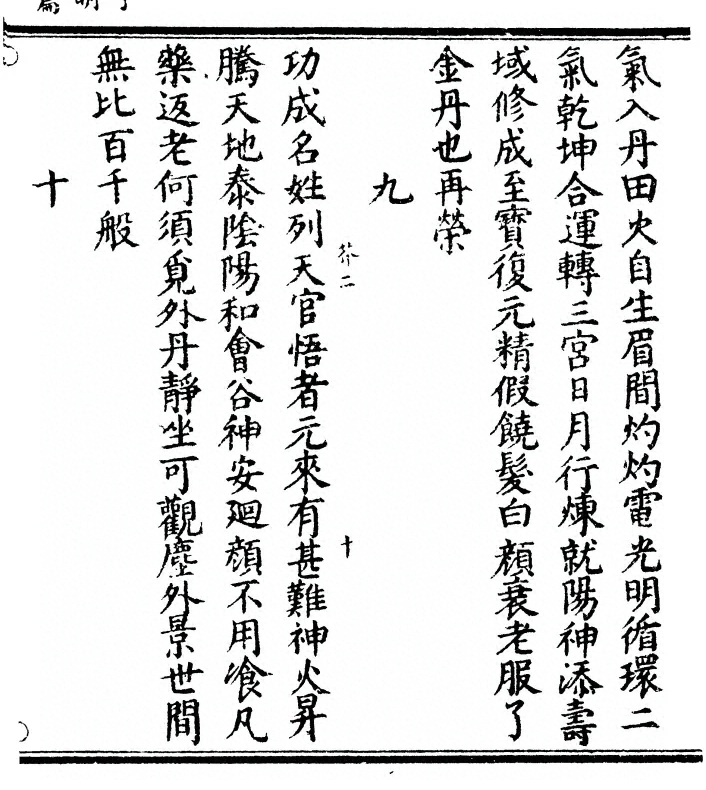 氣入丹田火自生眉間灼灼電光明循環二
氣乾坤合運轉三宮日月行煉就陽神添壽
域修成至寶復元精假饒髮白顏衰老服了
金丹也再榮
九
芥二
功成名姓列天官悟者元來有甚難神火昇
十
騰天地泰陰陽和會谷神安廻顏不用飡凡
藥返老何須覓外丹靜坐可觀塵外景世間
無比百千般
十